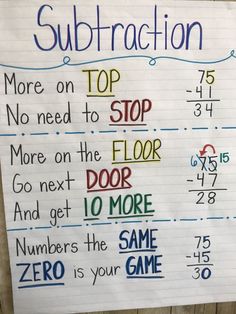 Subtraction
More on TOP
No need to STOP
75
- 41
34
More on the FLOOR
Go next DOOR
And get 10 MORE
6 15
75
- 47
28
Numbers the SAME
ZERO is your GAME
75
- 45
30